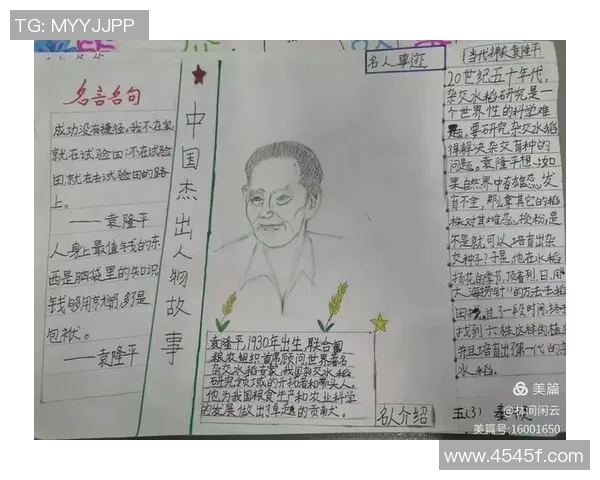 TG: MYYJJPP
名言名句
成功没有捷径。我不在家,
就在试验田;不在试验
田,就在去试验田的路
上。
——袁隆平
人身上最值钱的东
西是脑袋里的知识
钱够用就够,多是
包袱。
——袁隆平
中国杰出人物故事
袁隆平,1930年出生,联合国
粮农组织首席顾问,世界著名
杂交水稻专家,我国杂交水稻
研究领域的开拓者和带头人。
他为我国粮食生产和农业科学
的发展做出了卓越的贡献大。
名人介绍
名人事迹
当代神农袁隆平
20世纪五十年代,
杂交水稻研究是一
个世界性的科学难
题。要研究杂交水稻
得解决杂交育种的
问题。袁隆平想:如
果自然界中有雄蕊发
育不全,那么拿其它的稻
株对其雌蕊授粉,是
不是就可以培育出杂
交种子?于是,他在水稻
扬花的季节,顶着烈日,用
大海捞针"的方法去稻
田找。过了一段时间,终于
找到六株这样的植
并且培育出了第一代的杂
水稻。
五(3) 秦
美篇
@林间闲云
美篇号:16001650
www.4545f.com